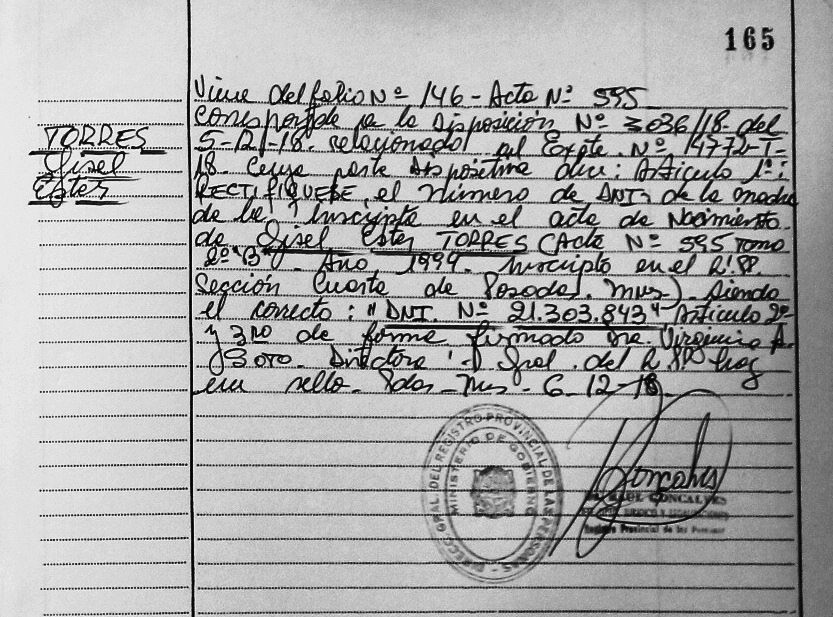 165
Viene del folio Nº 146 - Acta Nº 595
TORRES
Gisel
Ester
corresponde a la Disposición Nº 3036/18 del
5-12-18. relacionado al Expte. Nº 14772-T-
18. Cuya parte dispositiva dice: Articulo 1º:
RECTIFIQUESE, el número de DNI, de la madre
de la inscripta en el acta de Nacimiento
de Gisel Ester TORRES (Acta Nº 595 Tomo
2º "B" Año 1994. inscripto en el R.PP.
Sección Cuarta de Posadas. Mnes) siendo
el correcto: "DNI. Nº 21.303.843" Articulo 2º
y 3ro de forma firmado Dra. Virginia
Directora Gral. del R.PP. hay
un sello. Pdas. Mnes. 6-12-18
DIRECC. GRAL. DEL REGISTRO PROVINCIAL DE LAS PERSONAS
MINISTERIO DE GOBIERNO
Goncalves
RAUL GONCALVES
Registro Provincial de las Personas